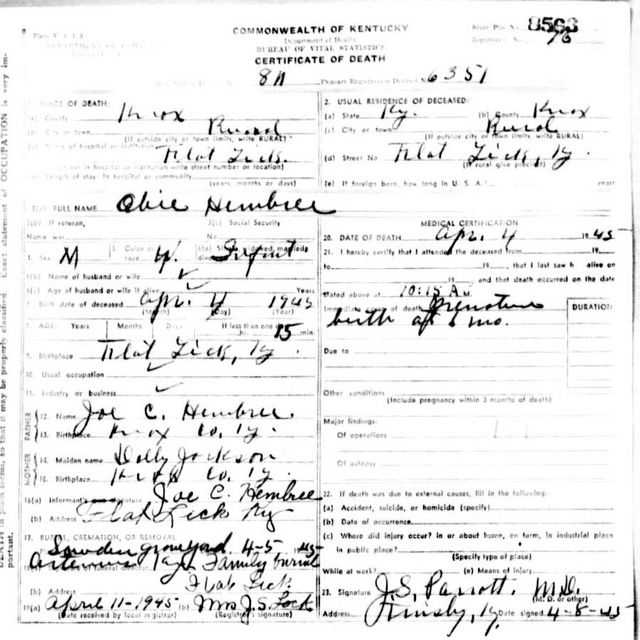 COMMONWEALTH OF KENTUCKY
Department of Health
BUREAU OF VITAL STATISTICS
CERTIFICATE OF DEATH
8563
76
Primary Registration District 6351
1. PLACE OF DEATH:
(a) County Knox
(b) City or town Rural
(If outside city or town limits, write RURAL)
Flat Lick.
(If not in hospital or institution write street number or location)
(d) Length of stay: In hospital or community
(years, months or days)
2. USUAL RESIDENCE OF DECEASED:
(a) State Ky. (b) County Knox
(c) City or town Rural
(If outside city or town limits, write RURAL)
(d) Street No Flat Lick, Ky.
(If rural give precinct)
(e) If foreign born, how long in U. S. A.? years
3(a) FULL NAME Obie Hembree
3(b) If veteran, 3(c) Social Security
Name war No.
4. Sex M 5. Color or race W. 6(a) Single, widowed, married, divorced Infant
6(b) Name of husband or wife
6(c) Age of husband or wife if alive Years
7. Birth date of deceased Apr. 4 1945
(Month) (Day) (Year)
8. AGE: Years Months Days If less than one day
hr. 15 min.
9. Birthplace Flat Lick, Ky.
10. Usual occupation
11. Industry or business
FATHER
12. Name Joe C. Hembree.
13. Birthplace Knox Co. Ky.
MOTHER
14. Maiden name Dolly Jackson
15. Birthplace Knox Co. Ky.
16(a) Informant's signature Joe C. Hembree
(b) Address Flat Lick Ky
17. BURIAL, CREMATION, OR REMOVAL
graveyard 4-5 1945
Artemus Family burial
18. Flat Lick
(b) Address
19(a) April 11-1945 (b) Mrs J.S. Lock
(Date received by local registrar) (Registrar's signature)
MEDICAL CERTIFICATION
20. DATE OF DEATH Apr. 4 1945
21. I hereby certify that I attended the deceased from 19
to 19, that I last saw h alive on
19 and that death occurred on the date
stated above at 10:15 A.M.
Immediate cause of death Premature
birth at 6 mo.
DURATION
Due to
Other conditions
(Include pregnancy within 3 months of death)
Major findings:
Of operations
Of autopsy
22. If death was due to external causes, fill in the following:
(a) Accident, suicide, or homicide (specify)
(b) Date of occurrence
(c) Where did injury occur? in or about home, on farm, in industrial place
in public place?
(Specify type of place)
While at work? (e) Means of injury
23. Signature J.S. Parrott. M.D.
(M. D. or other)
Address Ky. Date signed 4-8-45